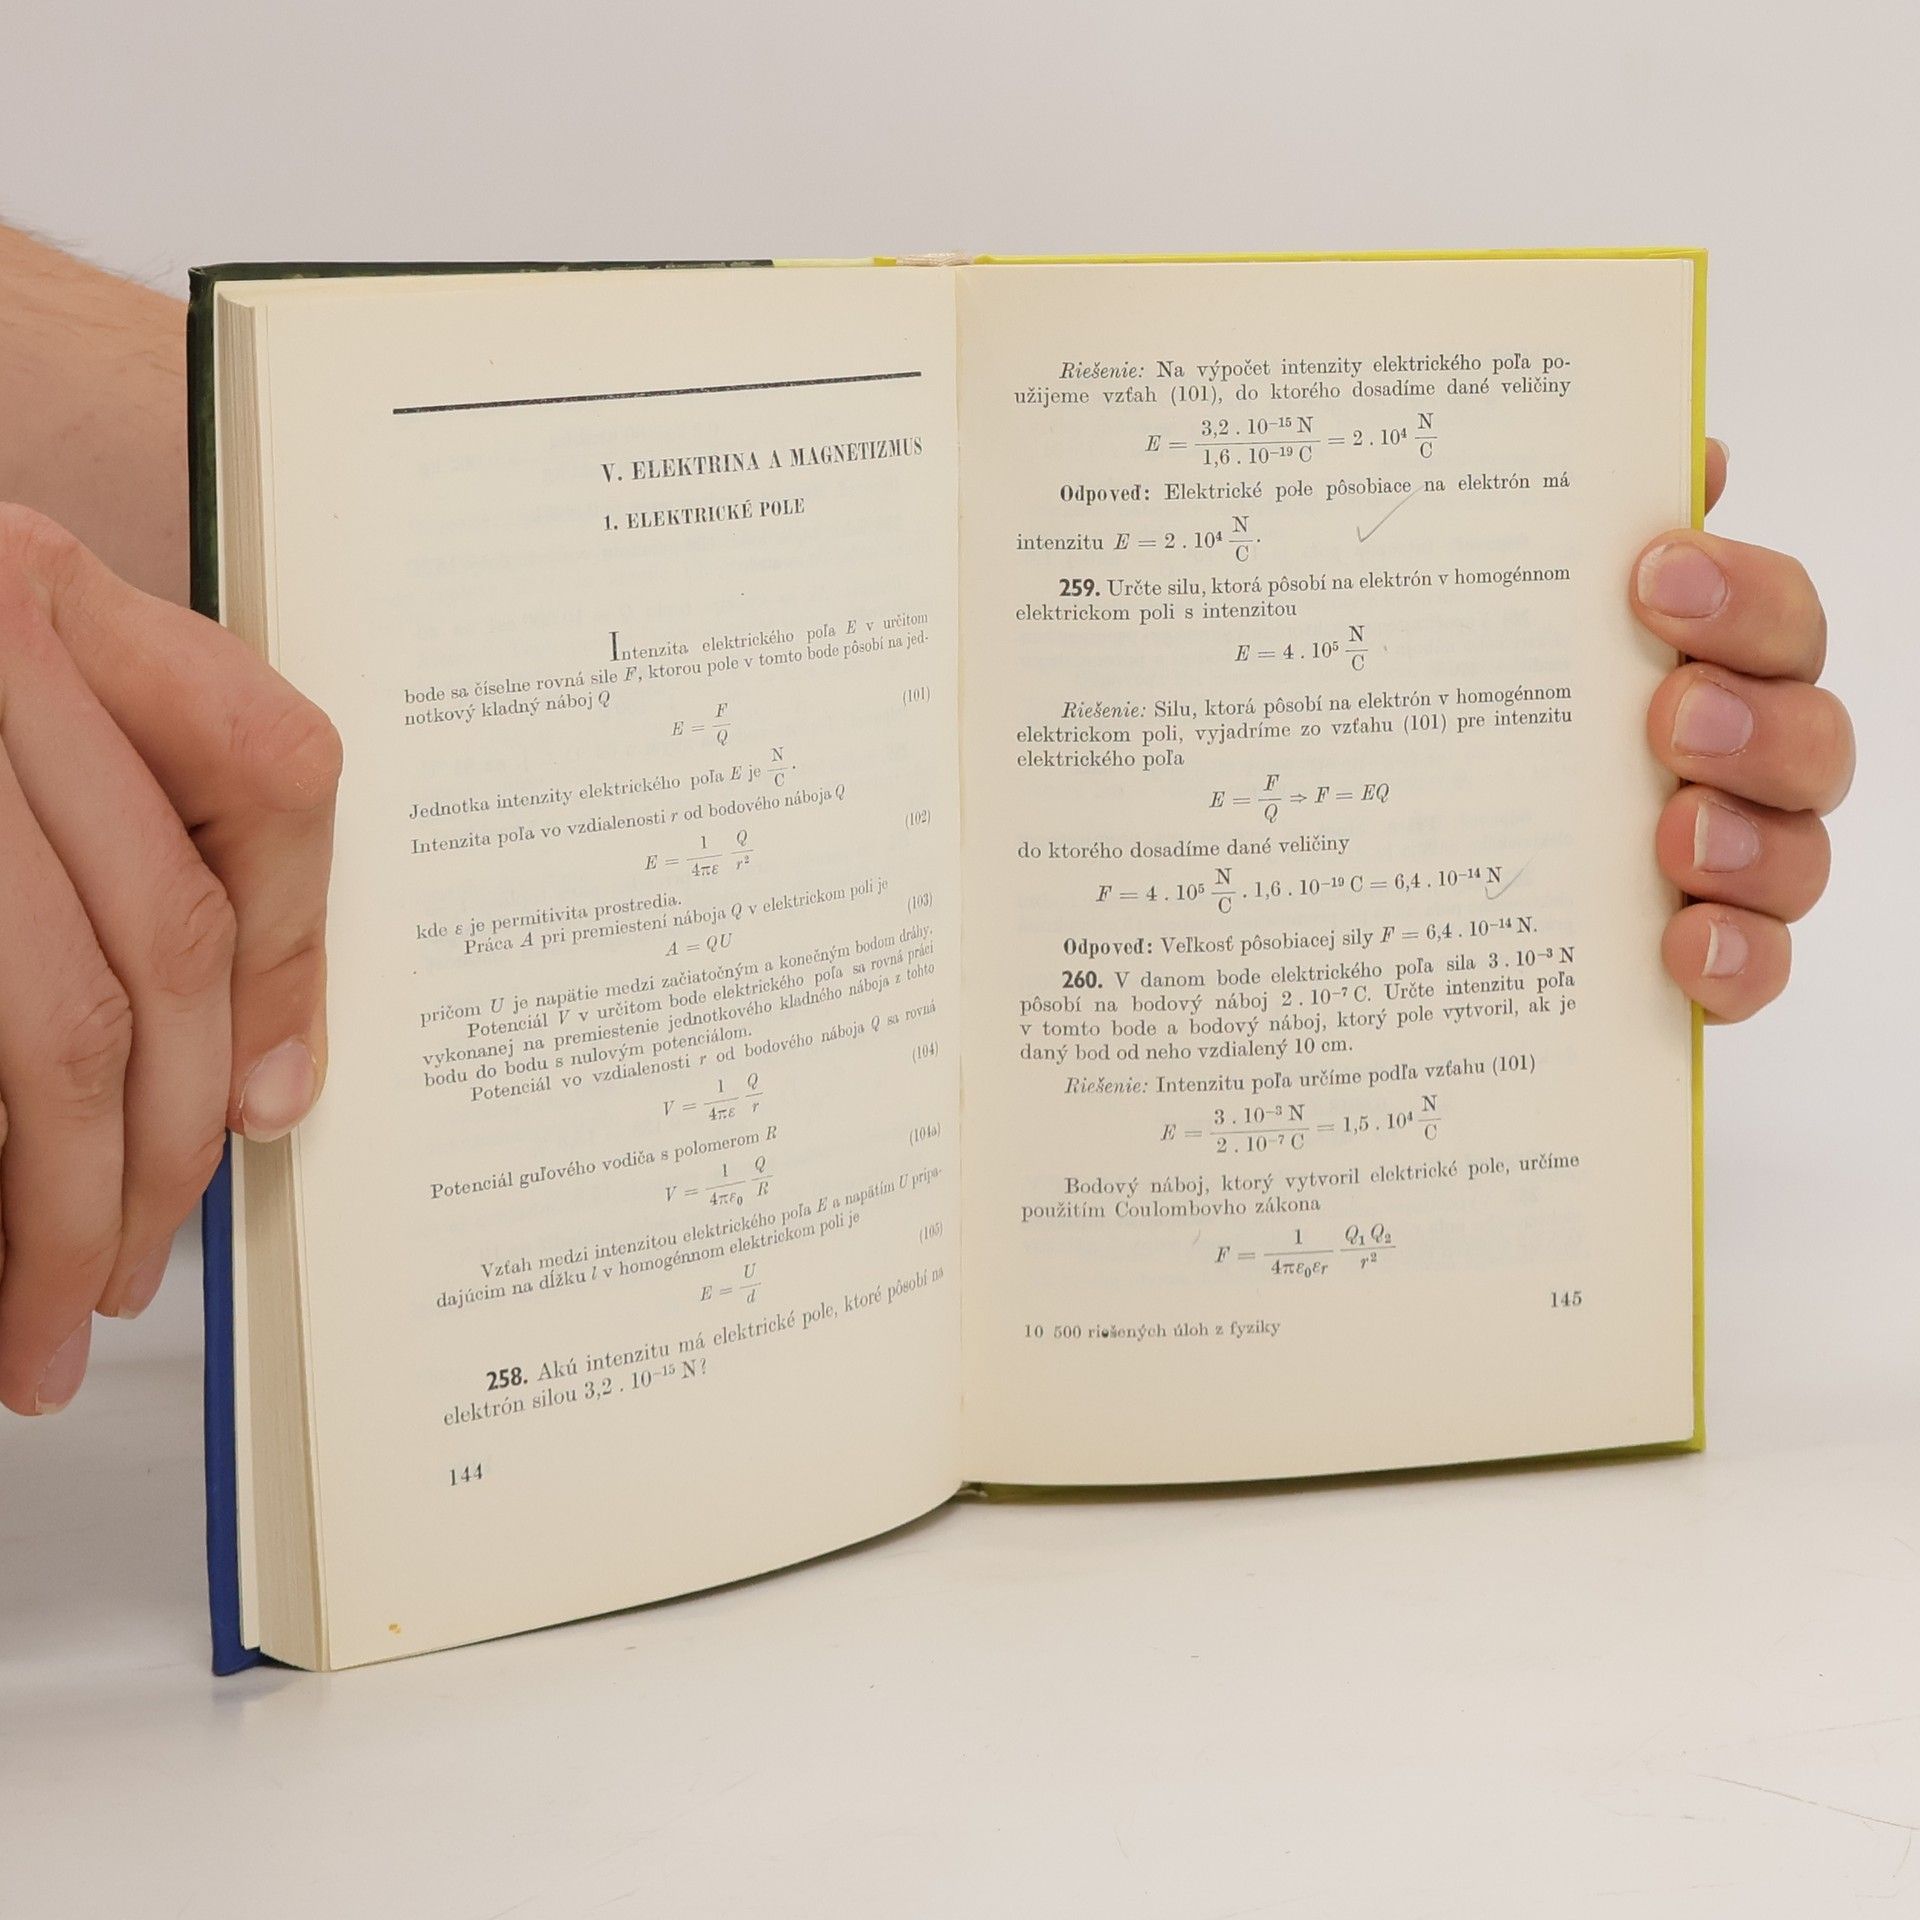 V. ELEKTRINA A MAGNETIZMUS
1. ELEKTRICKÉ POLE
Intenzita elektrického poľa E v určitom
bode sa číselne rovná sile F, ktorou pole v tomto bode pôsobí na jed-
notkový kladný náboj Q
E = F/Q (101)
Jednotka intenzity elektrického poľa E je N/C.
Intenzita poľa vo vzdialenosti r od bodového náboja Q
E = 1/4πε Q/r² (102)
kde ε je permitivita prostredia.
Práca A pri premiestení náboja Q v elektrickom poli je
A = QU (103)
pričom U je napätie medzi začiatočným a konečným bodom dráhy.
Potenciál V v určitom bode elektrického poľa sa rovná práci
vykonanej na premiestenie jednotkového kladného náboja z tohto
bodu do bodu s nulovým potenciálom.
Potenciál vo vzdialenosti r od bodového náboja Q sa rovná
V = 1/4πε Q/r (104)
Potenciál guľového vodiča s polomerom R
V = 1/4πε₀ Q/R (104a)
Vzťah medzi intenzitou elektrického poľa E a napätím U pripa-
dajúcim na dĺžku l v homogénnom elektrickom poli je
E = U/d (105)
258. Akú intenzitu má elektrické pole, ktoré pôsobí na
elektrón silou 3,2 . 10⁻¹⁵ N?
144
Riešenie: Na výpočet intenzity elektrického poľa po-
užijeme vzťah (101), do ktorého dosadíme dané veličiny
E = 3,2 . 10⁻¹⁵ N / 1,6 . 10⁻¹⁹ C = 2 . 10⁴ N/C
Odpoveď: Elektrické pole pôsobiace na elektrón má
intenzitu E = 2 . 10⁴ N/C.
259. Určte silu, ktorá pôsobí na elektrón v homogénnom
elektrickom poli s intenzitou
E = 4 . 10⁵ N/C
Riešenie: Silu, ktorá pôsobí na elektrón v homogénnom
elektrickom poli, vyjadríme zo vzťahu (101) pre intenzitu
elektrického poľa
E = F/Q ⇒ F = EQ
do ktorého dosadíme dané veličiny
F = 4 . 10⁵ N/C . 1,6 . 10⁻¹⁹ C = 6,4 . 10⁻¹⁴ N
Odpoveď: Veľkosť pôsobiacej sily F = 6,4 . 10⁻¹⁴ N.
260. V danom bode elektrického poľa sila 3 . 10⁻³ N
pôsobí na bodový náboj 2 . 10⁻⁷ C. Určte intenzitu poľa
v tomto bode a bodový náboj, ktorý pole vytvoril, ak je
daný bod od neho vzdialený 10 cm.
Riešenie: Intenzitu poľa určíme podľa vzťahu (101)
E = 3 . 10⁻³ N / 2 . 10⁻⁷ C = 1,5 . 10⁴ N/C
Bodový náboj, ktorý vytvoril elektrické pole, určíme
použitím Coulombovho zákona
F = 1/4πε₀εᵣ Q₁ Q₂/r²
145
10 500 riešených úloh z fyziky